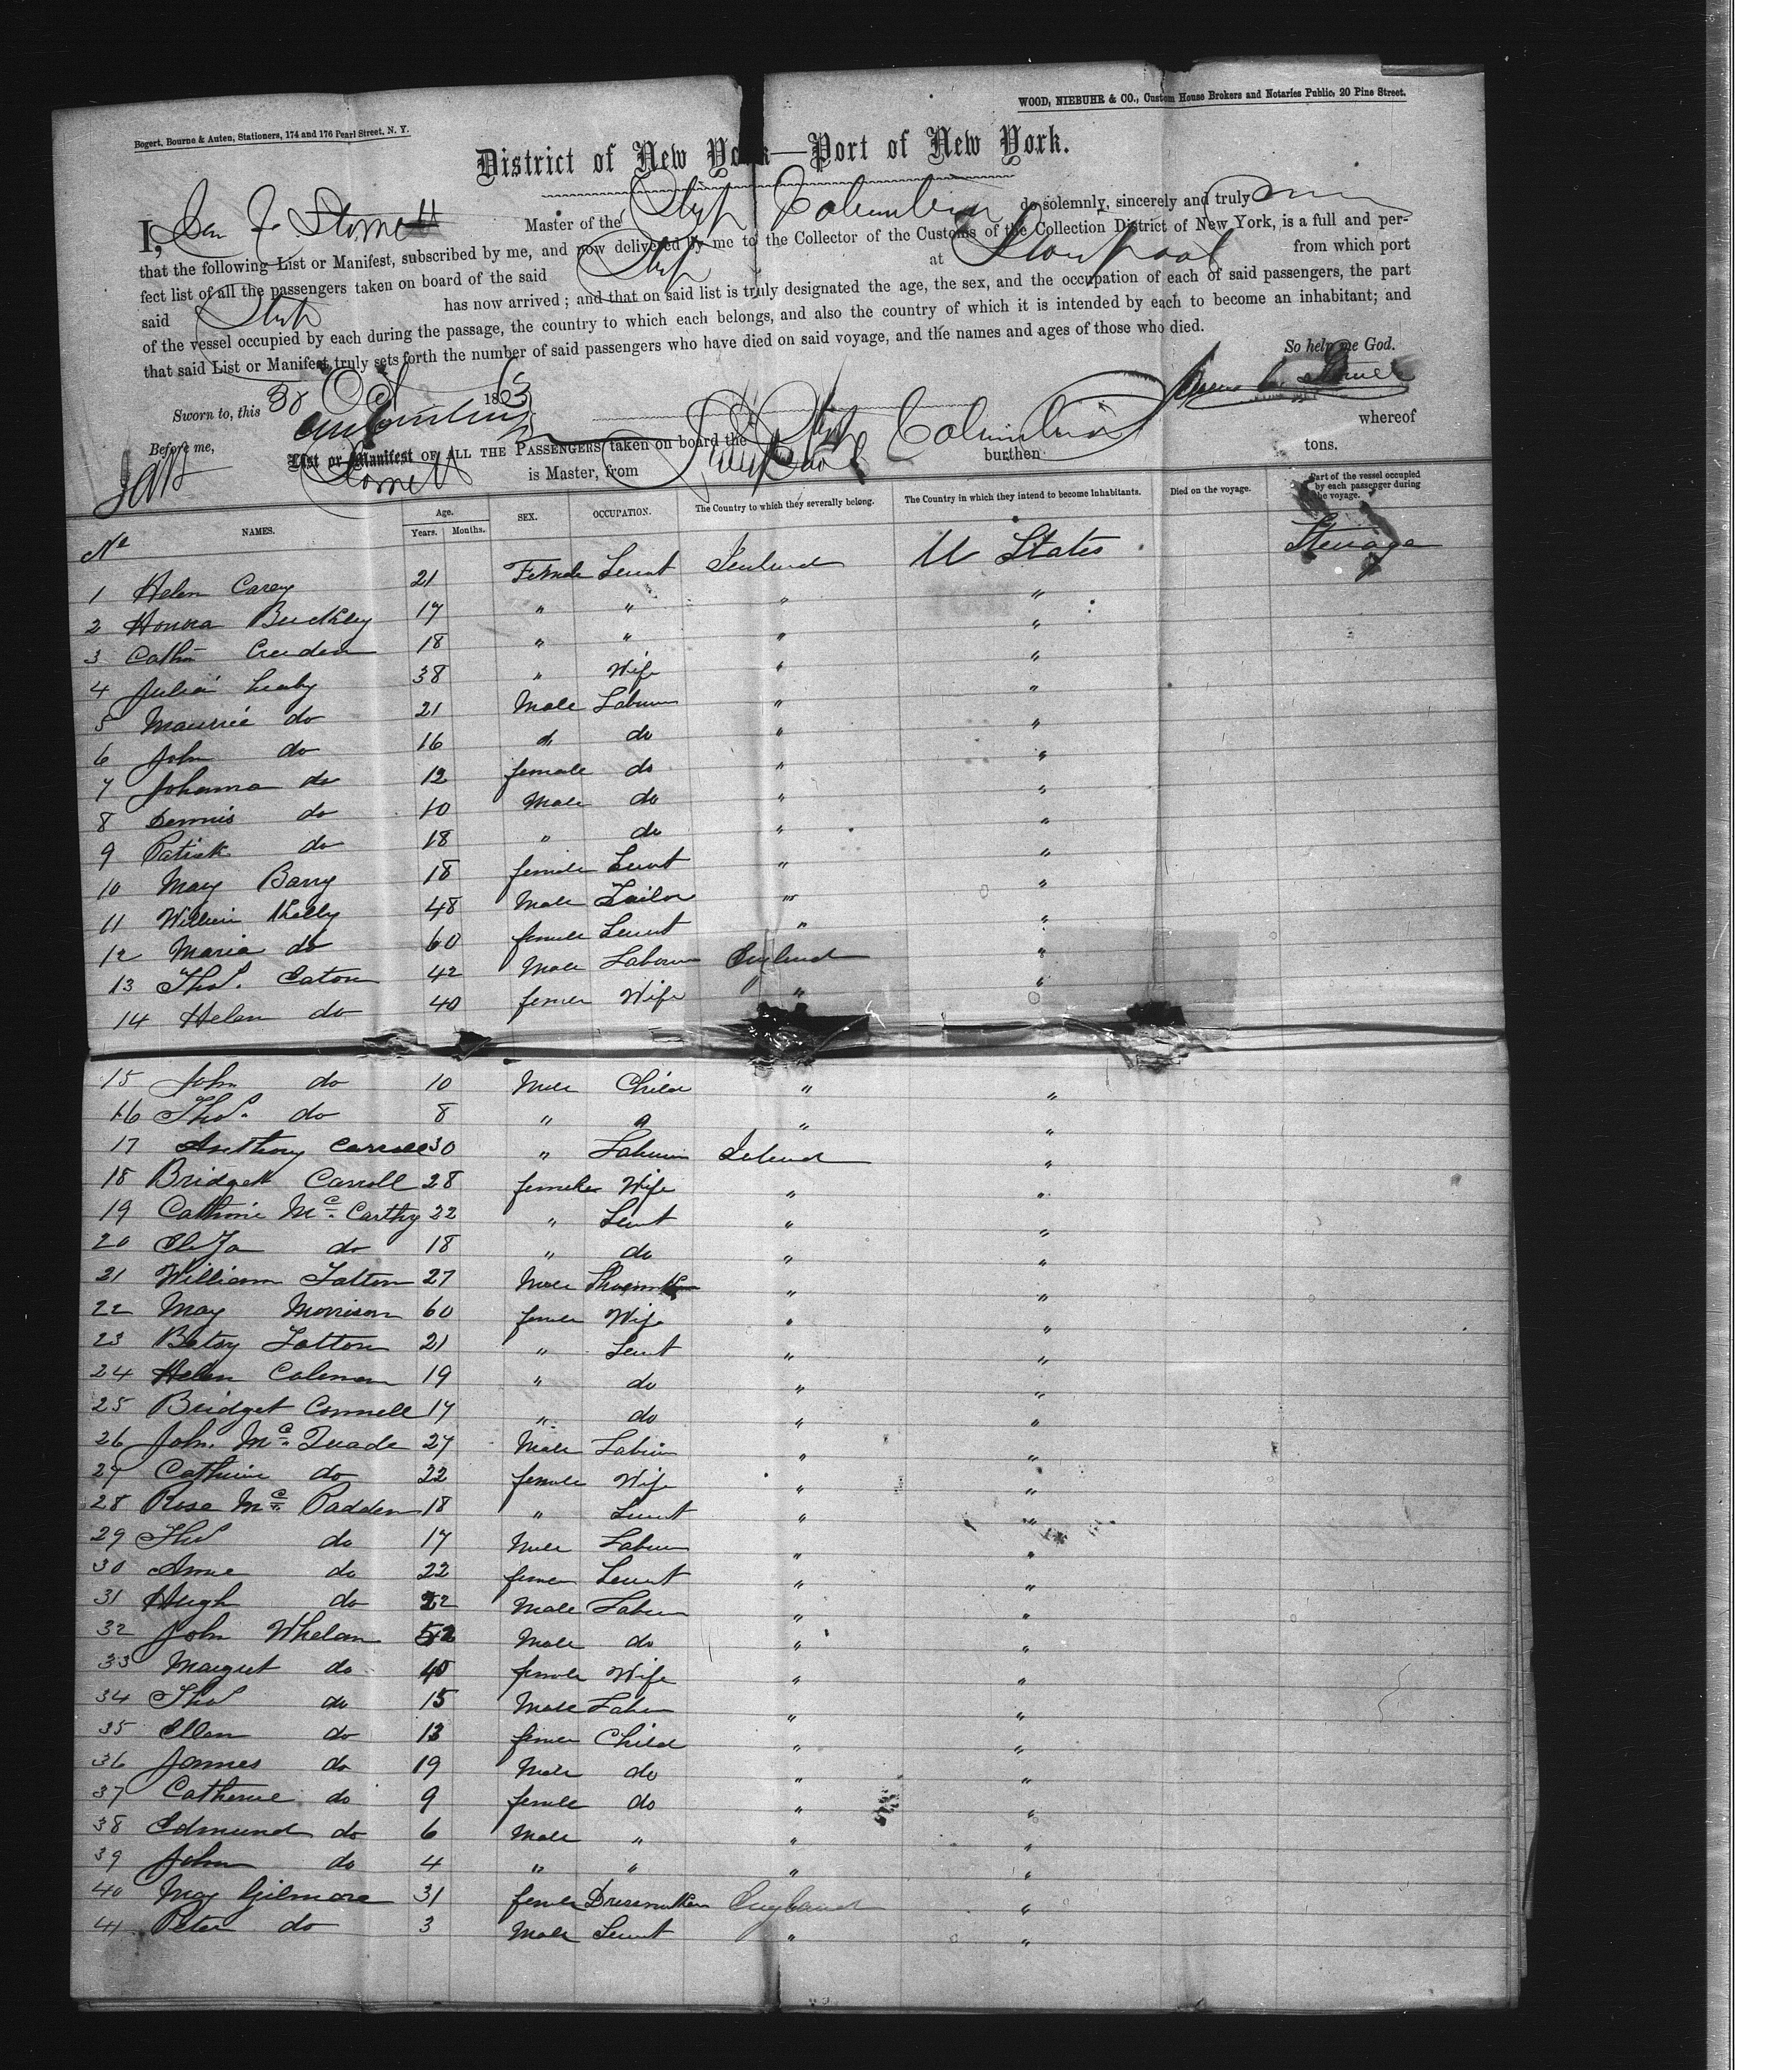 Bogert, Bourne & Auten, Stationers, 174 and 176 Pearl Street, N. Y.
WOOD, NIEBUHR & CO., Custom House Brokers and Notaries Public, 20 Pine Street.
District of New York—Port of New York.
I, Master of the Ship Columbia do solemnly, sincerely and truly
that the following List or Manifest, subscribed by me, and now delivered by me to the Collector of the Customs of the Collection District of New York, is a full and per-
fect list of all the passengers taken on board of the said Ship at Liverpool from which port
said Ship has now arrived; and that on said list is truly designated the age, the sex, and the occupation of each of said passengers, the part
of the vessel occupied by each during the passage, the country to which each belongs, and also the country of which it is intended by each to become an inhabitant; and
that said List or Manifest truly sets forth the number of said passengers who have died on said voyage, and the names and ages of those who died.
So help me God.
Sworn to, this 30 Oct 1863
Before me,
List or Manifest OF ALL THE PASSENGERS taken on board the Ship Columbia whereof
is Master, from Liverpool burthen tons.
No NAMES. Age. Years. Months. SEX. OCCUPATION. The Country to which they severally belong. The Country in which they intend to become Inhabitants. Died on the voyage. Part of the vessel occupied by each passenger during the voyage.
1 Helen Carey 21 Female Servt Ireland U States Steerage
2 Honora Buckley 17 " " " "
3 Cathn Creedon 18 " " " "
4 Julia Leahy 38 " Wife " "
5 Maurice do 21 Male Labourer " "
6 John do 16 do " "
7 Johanna do 12 female do " "
8 Dennis do 10 Male do " "
9 Patrick do 18 " do " "
10 Mary Barry 18 female Servt " "
11 William Kelly 48 Male Tailor " "
12 Maria do 60 female Servt " "
13 Thos. Eaton 42 Male Labourer England "
14 Helen do 40 female Wife " "
15 John do 10 Male Child " "
16 Thos. do 8 " " " "
17 Anthony Carroll 30 " Labourer Ireland "
18 Bridget Carroll 28 female Wife " "
19 Cathrine Mc Carthy 22 " Servt " "
20 Eliza do 18 " do " "
21 William Tatton 27 Male Shoemker " "
22 Mary Morrison 60 female Wife " "
23 Betsy Tatton 21 " Servt " "
24 Helen Coleman 19 " do " "
25 Bridget Connell 17 " do " "
26 John Mc Quade 27 Male Labour " "
27 Catherine do 22 female Wife " "
28 Rose Mc Padden 18 " Servt " "
29 Thos do 17 Male Labour " "
30 Anne do 22 female Servt " "
31 Hugh do 22 Male Labour " "
32 John Whelan Male do " "
33 Margret do 40 female Wife " "
34 Thos do 15 Male Labour " "
35 Ellen do 13 female Child " "
36 James do 19 Male do " "
37 Catherine do 9 female do " "
38 Edmund do 6 Male " " "
39 John do 4 " " " "
40 May Gilmore 31 female Dressmaker England "
41 Peter do 3 Male Servt " "